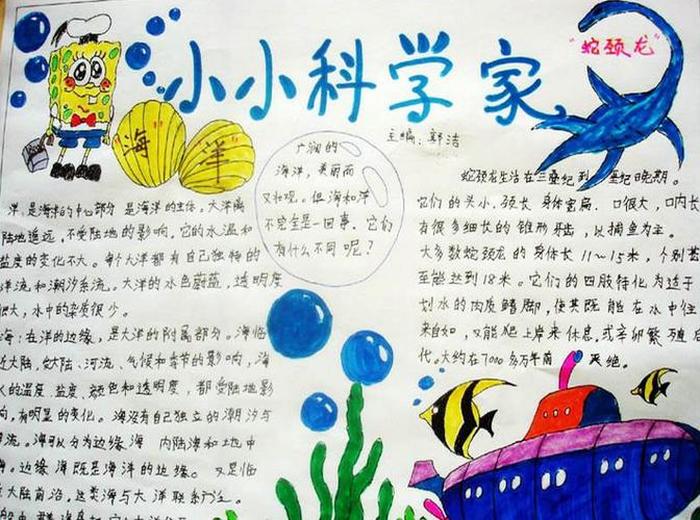 小小科学家
"蛇颈龙"
主编:郭洁
海洋
广阔的
海洋,美丽而
又壮观。但海和洋
不完全是一回事,它们
有什么不同呢?
洋,是海洋的中心部分,是海洋的主体。大洋离
陆地遥远,不受陆地的影响,它的水温和
盐度的变化不大。每个大洋都有自己独特的
洋流和潮汐系统。大洋的水色蔚蓝,透明度
很大,水中的杂质很少。
海:在洋的边缘,是大洋的附属部分。海临
近大陆,受大陆、河流、气候和季节的影响,海
水的温度、盐度、颜色和透明度,都受陆地影
响,有明显的变化。海没有自己独立的潮汐与
海流。海可以分为边缘海 内陆海和地中
海。边缘海既是海洋的边缘。又是临
近大陆前沿,这类海与大洋联系
蛇颈龙生活在三叠纪到 垩纪晚期。
它们的头小、颈长、身体宽扁、口很大,口内长
有很多细长的锥形牙齿,以捕鱼为主。
大多数蛇颈龙的身体长11～15米,个别甚
至能达到18米。它们的四肢特化为适于
划水的肉质鳍脚,使其既能在水中往
来自如,又能爬上岸来休息,或辛卵繁殖后
代。大约在7000多万年前 灭绝。